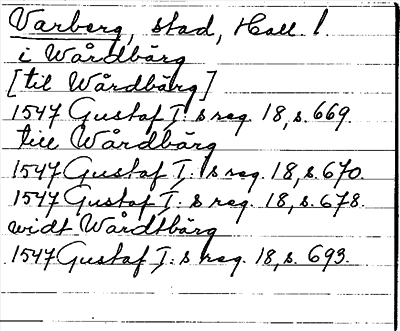 Varberg, stad, Hall. l.
i Wårdbärg
[til Wårdbärg]
1547 Gustaf I:s reg. 18, s. 669.
till Wårdbärg
1547 Gustaf I:s reg. 18, s. 670.
1547 Gustaf I:s reg. 18, s. 678.
widt Wårdtbärg
1547 Gustaf I:s reg. 18, s. 693.